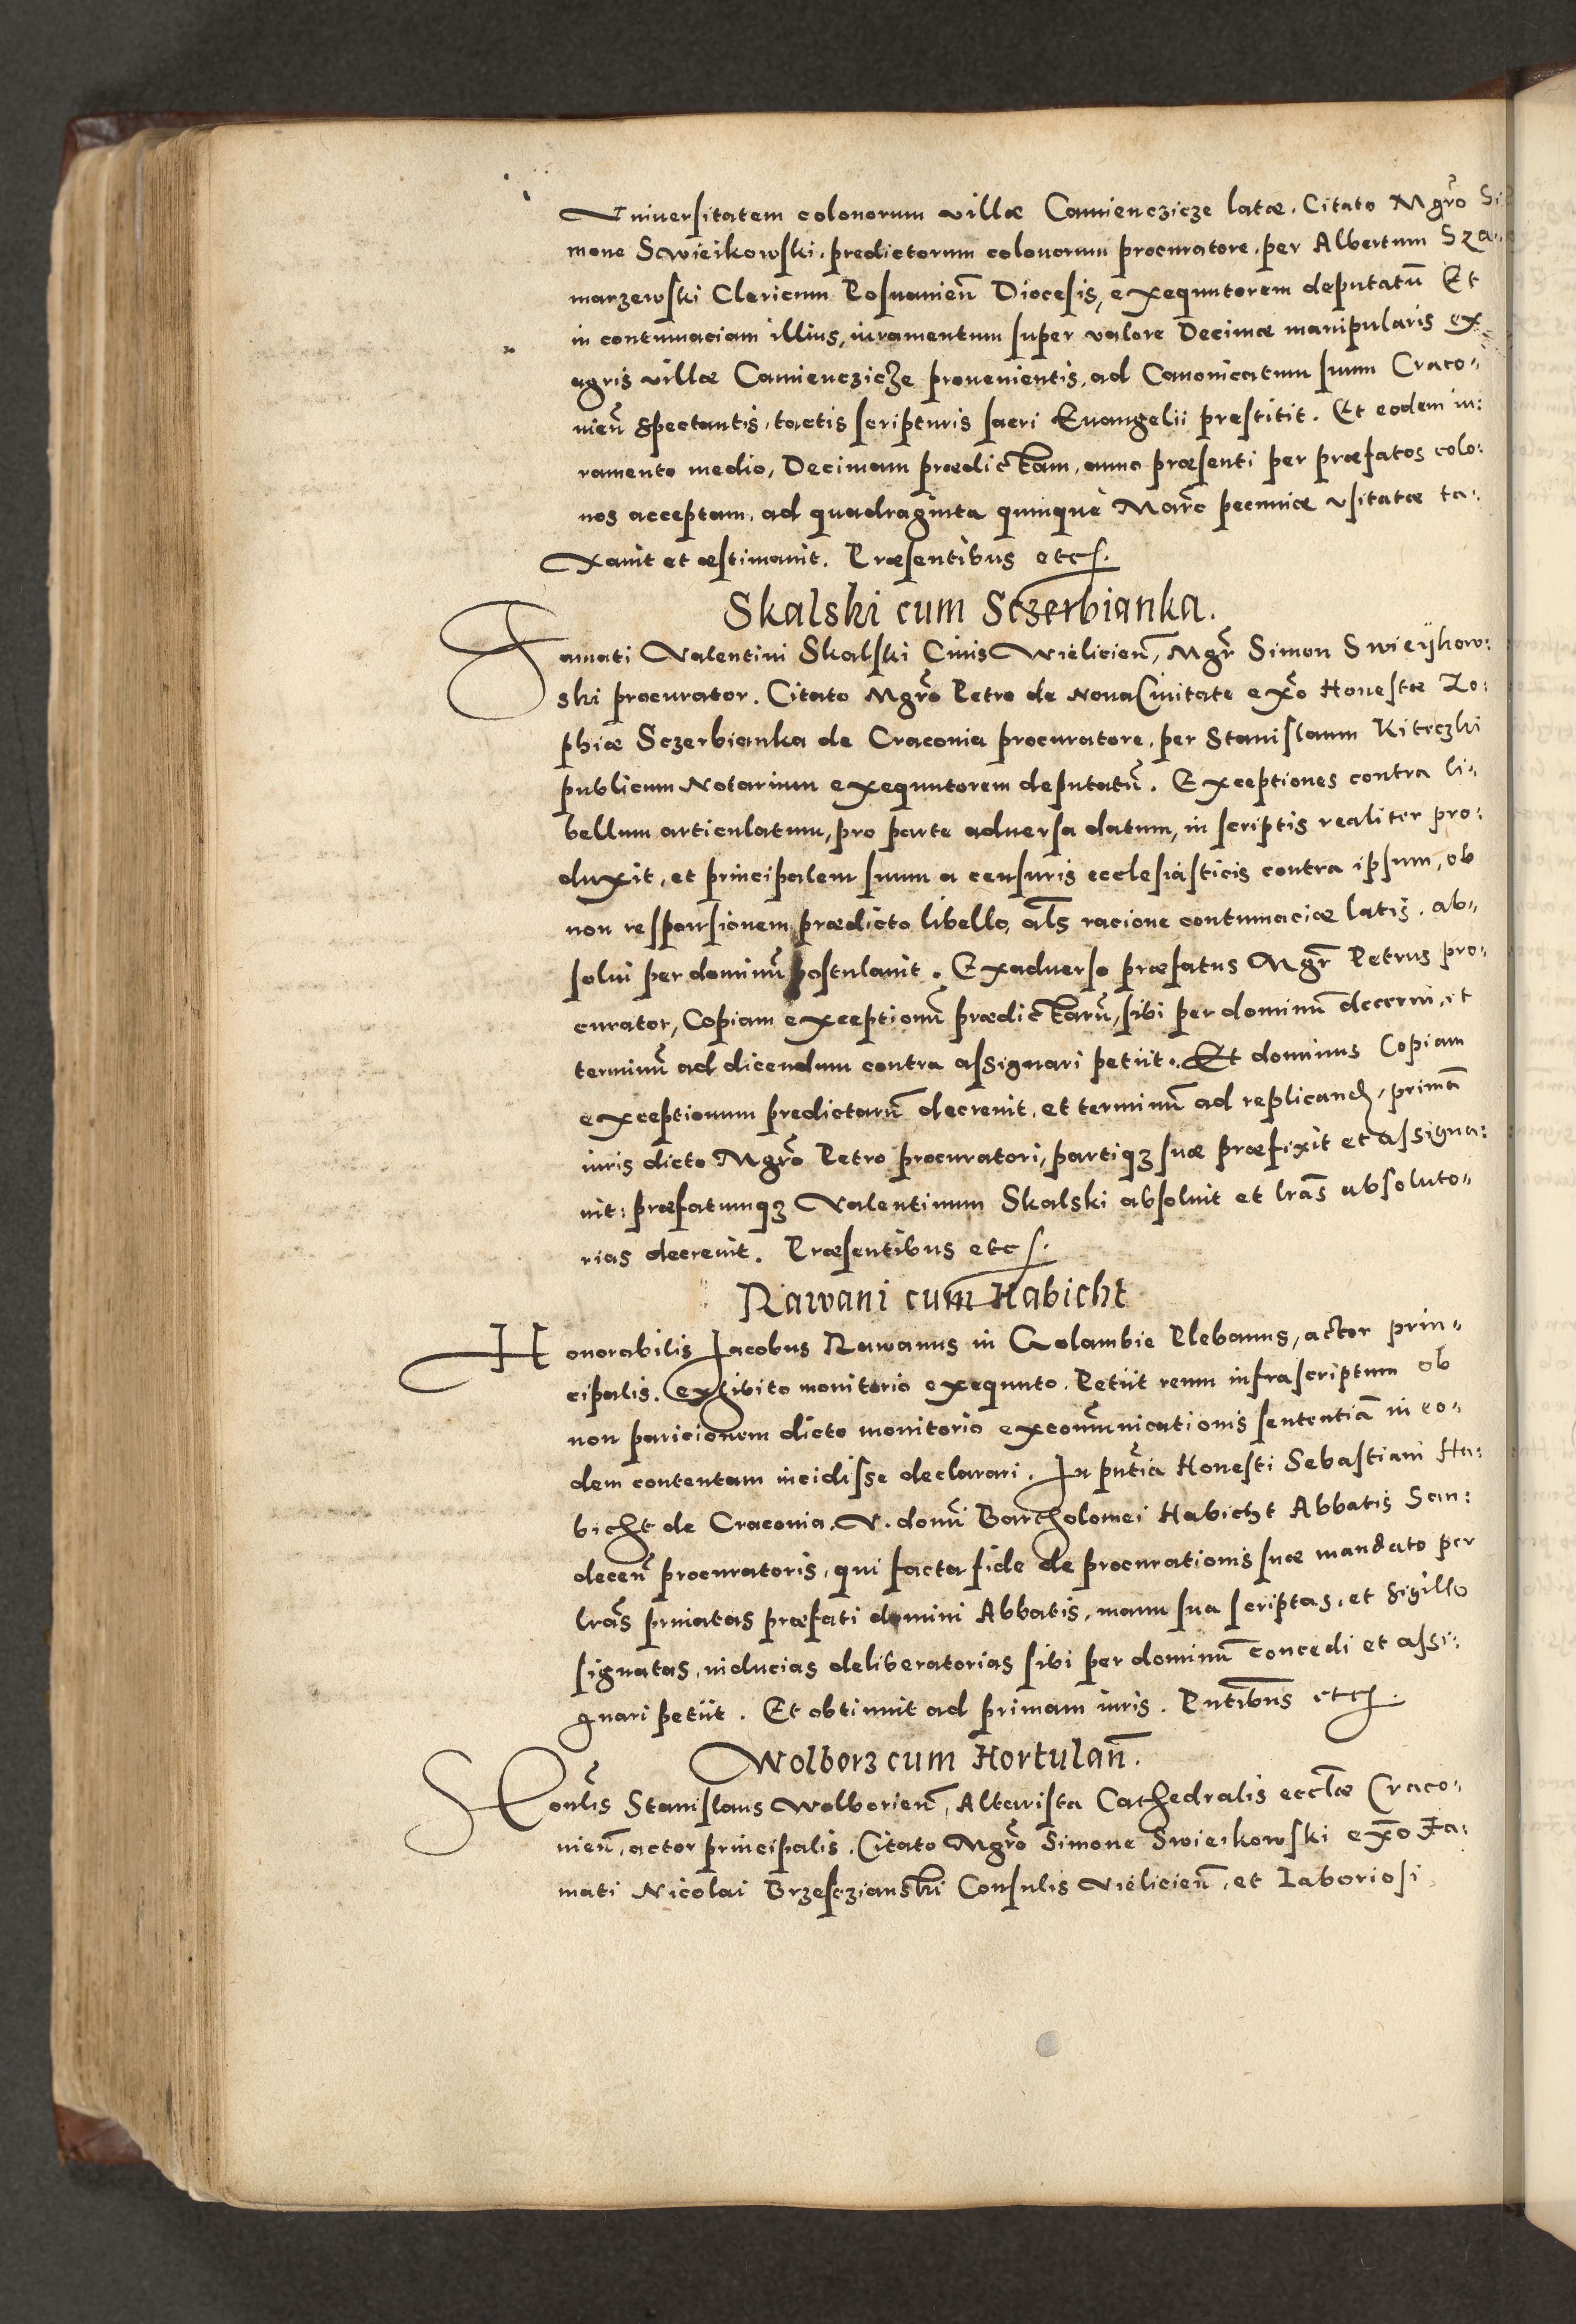 Vniuersitatem colonorum villæ Camienczicze latæ. Citato Mgr̃o Si
mone Swieikowski, predictorum colonorum procuratore, per Albertum Sza
marzewski Clericum Posnanien̄ Diocesis, exequutorem deputatū Et
in contumaciam illius, iuramentum super valore Decimæ manipularis ex
agris villæ Camienczicze prouenientis, ad Canonicatum suum Craco„
uien̄ spectantis, tactis scripturis sacri Euangelii prestitit. Et eodem iu:
ramento medio, Decimam prædictam, anno præsenti per præfatos colo:
nos acceptam, ad quadraginta quinque Marc̄ pecuniæ vsitatæ ta:
xauit et æstimauit. Præsentibus etc.
Skalski cum Sczerbianka.
Famati Valentini Skalski Ciuis Wielicien̄, Mgr̃ Simon Swieÿkow:
ski procurator. Citato Mgr̃o Petro de Noua Ciuitate ex̃o Honestæ Zo:
phiæ Sczerbianka de Craconia procuratore, per Stanislaum Kitrczki
publicum Notarium exequutorem deputatū. Exceptiones contra li„
bellum articulatum, pro parte aduersa datum, in scriptis realiter pro:
duxit, et principalem suum a censuris ecclesiasticis contra ipsum, ob
non responsionem prædicto libello, als̄ racione contumaciæ latis, ab„
solui per dominū postulauit. Exaduerso præfatus Mgr̃ Petrus pro„
curator, Copiam exceptionū prædictarū, sibi per dominū decerni, et
terminū ad dicendum contra assignari petiit. Et dominus Copiam
exceptionum predictarū decreuit, et terminū ad replicand, primā
iuris dicto Mgr̃o Petro procuratori, partiqꝫ suæ præfixit et assigna:
uit: præfatumqꝫ Valentinum Skalski absoluit et lr̃as absoluto„
rias decreuit. Præsentibus etc.
Rawani cum Habicht
Honorabilis Jacobus Rawanus in Golambie Plebanus, actor prin„
cipalis. exhibito monitorio exequuto. Petiit reum infrascriptum ob
non paricionem dicto monitorio excom̄unicationis sententiā in eo„
dem contentam incidisse declarari. In pn̄tia Honesti Sebastiani Ha:
bicht de Craconia. V. domī Bartholomei Habicht Abbatis San:
decen̄ procuratoris, qui facta fide de procurationis suæ mandato per
lr̃as priuatas præfati domini Abbatis, manu sua scriptas, et sigillo
signatas, inducias deliberatorias sibi per dominū concedi et assi:
gnari petiit. Et obtinuit ad primam iuris. Pn̄tibus etc.
Wolborz cum Hortulan̄.
Honl̄is Stanislaus Wolborien̄, Altarista Cathedralis eccl̄æ Craco„
uien̄, actor principalis. Citato Mgr̃o Simone Swieikowski ex̃o Fa:
mati Nicolai Brzesczianski Consulis Vielicien̄, et Laboriosi